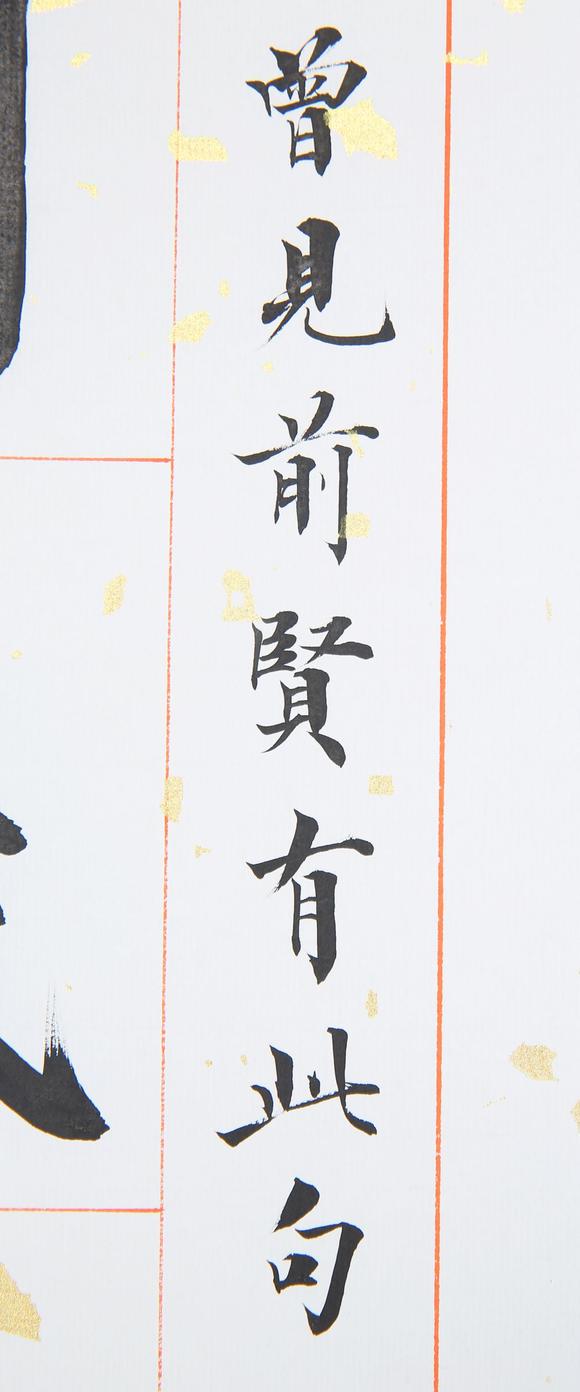 曾見前賢有此句